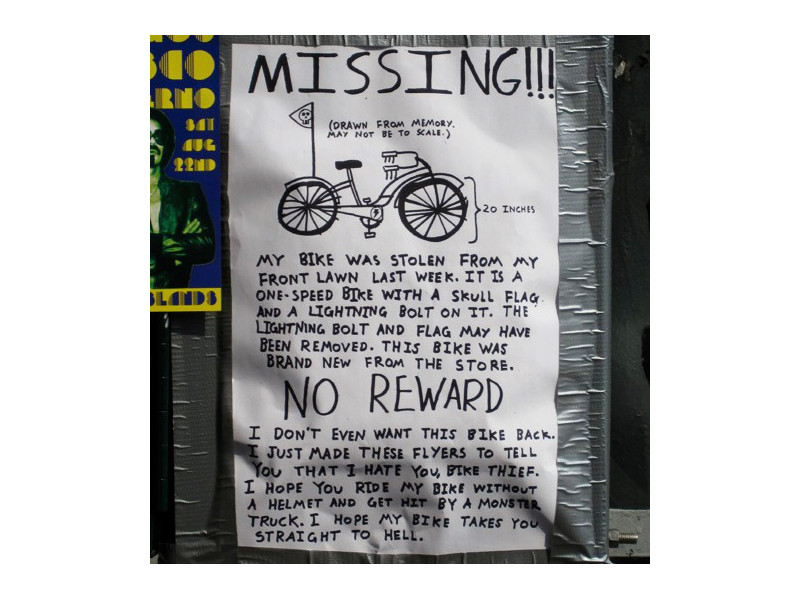 SCO
ERNO
SAT
AUG
22ND
SLANDS
MISSING!!!
(DRAWN FROM MEMORY.
MAY NOT BE TO SCALE.)
20 INCHES
MY BIKE WAS STOLEN FROM MY
FRONT LAWN LAST WEEK. IT IS A
ONE-SPEED BIKE WITH A SKULL FLAG
AND A LIGHTNING BOLT ON IT. THE
LIGHTNING BOLT AND FLAG MAY HAVE
BEEN REMOVED. THIS BIKE WAS
BRAND NEW FROM THE STORE.
NO REWARD
I DON'T EVEN WANT THIS BIKE BACK.
I JUST MADE THESE FLYERS TO TELL
YOU THAT I HATE YOU, BIKE THIEF.
I HOPE YOU RIDE MY BIKE WITHOUT
A HELMET AND GET HIT BY A MONSTER
TRUCK. I HOPE MY BIKE TAKES YOU
STRAIGHT TO HELL.